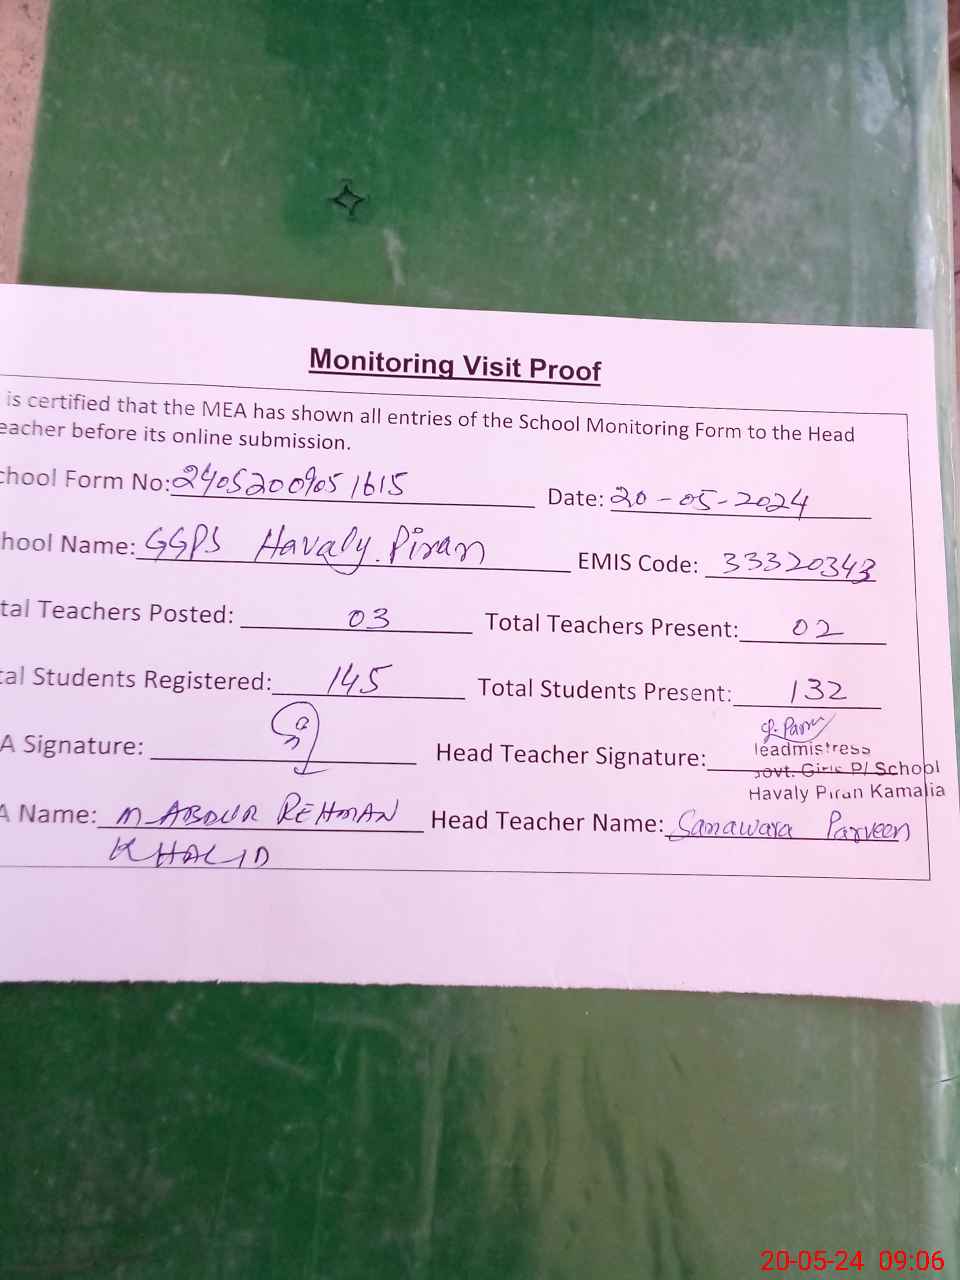 Monitoring Visit Proof
is certified that the MEA has shown all entries of the School Monitoring Form to the Head
eacher before its online submission.
chool Form No: 24052009051615 Date: 20-05-2024
hool Name: GGPS Havaly Piran EMIS Code: 33320343
tal Teachers Posted: 03 Total Teachers Present: 02
tal Students Registered: 145 Total Students Present: 132
A Signature: Head Teacher Signature:
leadmistress
Govt. Girls P/School
Havaly Piran Kamalia
A Name: M-ABDUR REHMAN Head Teacher Name: Sanawara Parveen
KHALID
20-05-24 09:06